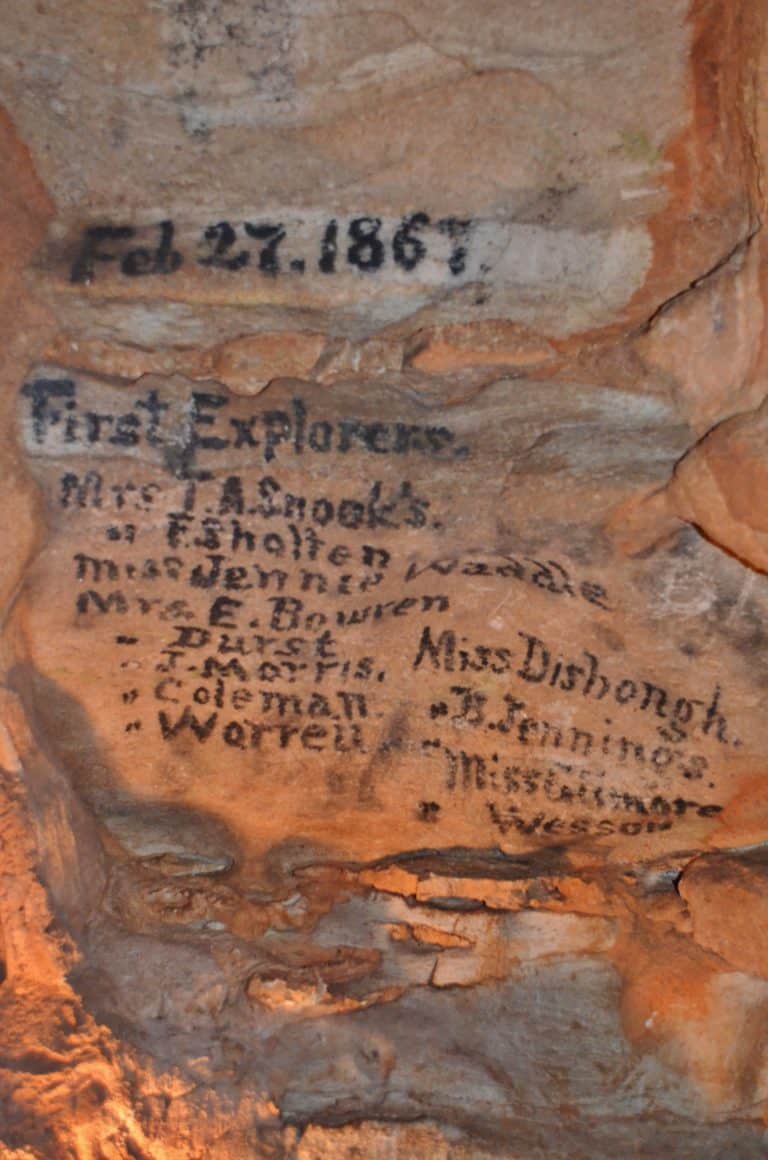 Feb 27. 1867.
First Explorers.
Mrs T. A. Snook's.
" F. Sholten
Miss Jennie Waddle
Mrs. E. Bowren
" Durst
" J. Morris.
" Coleman
" Worrell
Miss Dishongh.
" B. Jennings.
" Miss Gilmore
" Wesson